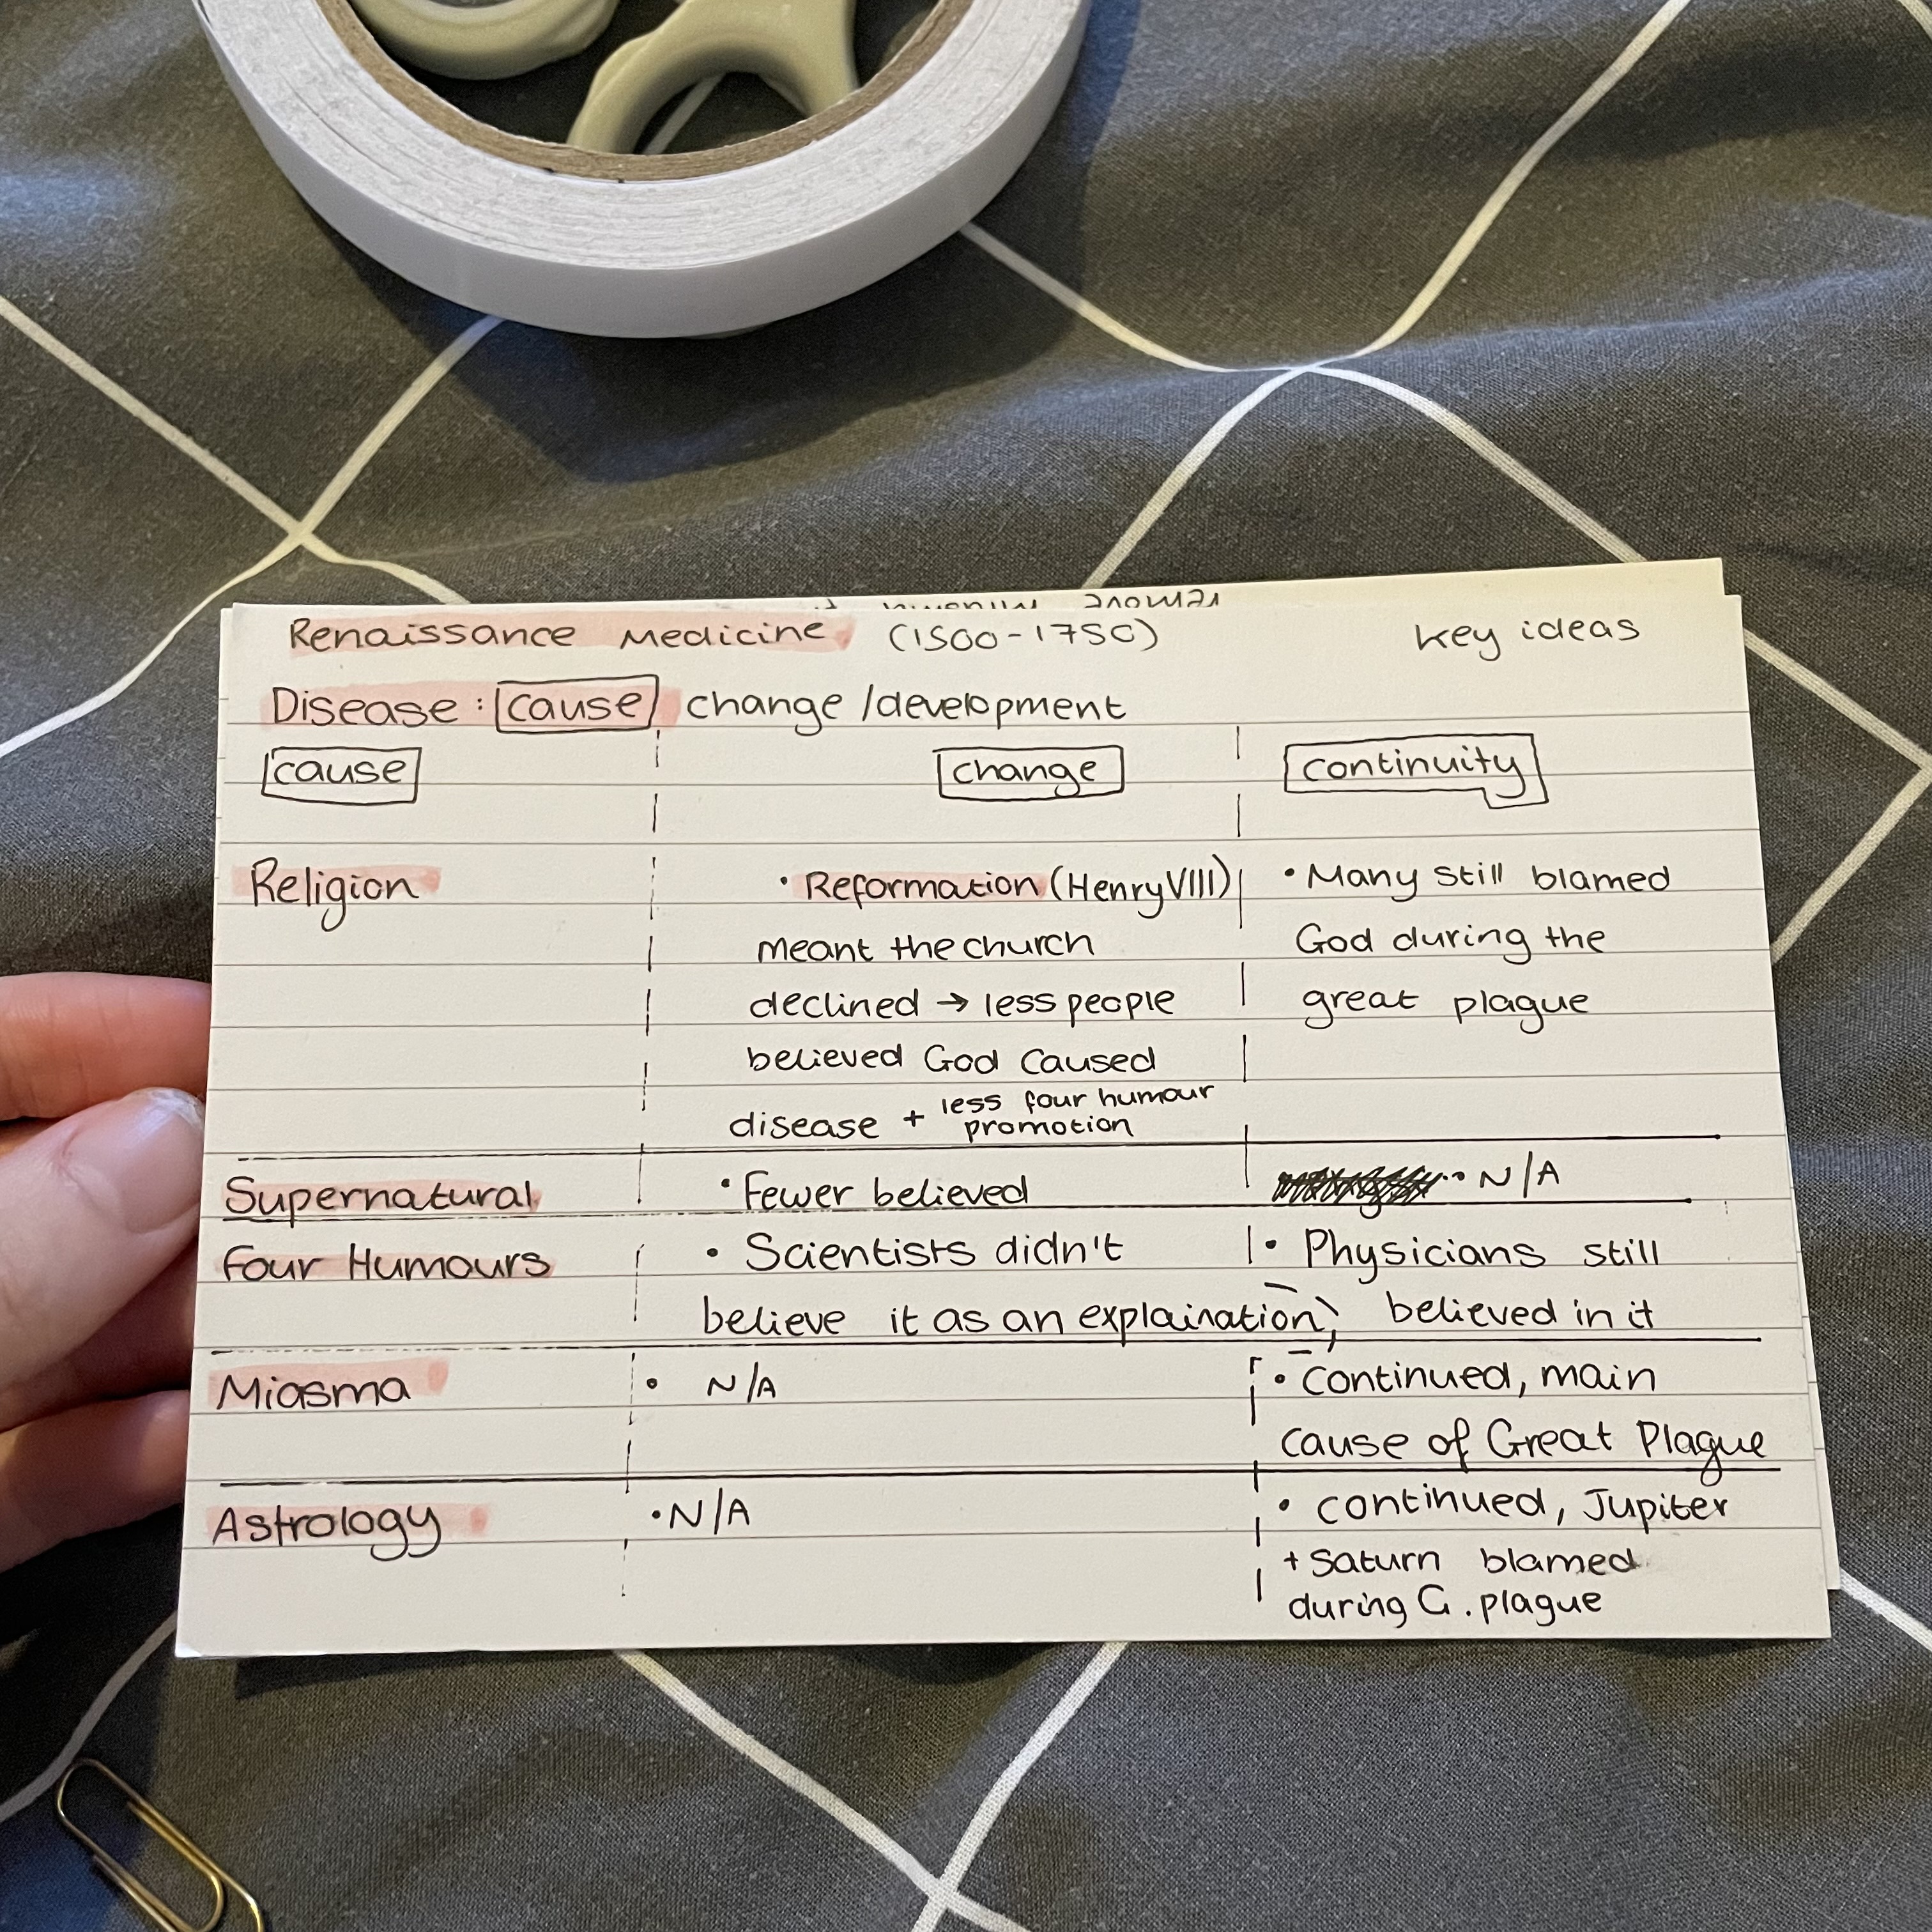 remove
Renaissance Medicine (1500-1750) key ideas
Disease: cause change/development
cause change continuity
Religion • Reformation (Henry VIII) • Many still blamed
meant the church God during the
declined → less people great plague
believed God caused
disease + less four humour
promotion
Supernatural • Fewer believed • N/A
Four Humours • Scientists didn't • Physicians still
believe it as an explaination, believed in it
Miasma • N/A • continued, main
cause of Great Plague
Astrology • N/A • continued, Jupiter
+ Saturn blamed
during G. plague